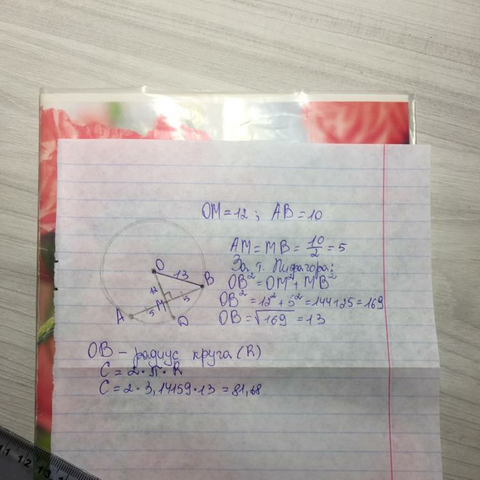 OM = 12 ; AB = 10
AM = MB = 10/2 = 5
За т. Пифагора:
OB² = OM² + MB²
OB² = 12² + 5² = 144+25 = 169
OB = √169 = 13
O
13
12
B
M
5
5
A
D
OB - радиус круга (R)
C = 2·π·R
C = 2·3,14159·13 = 81,68
11 12 13